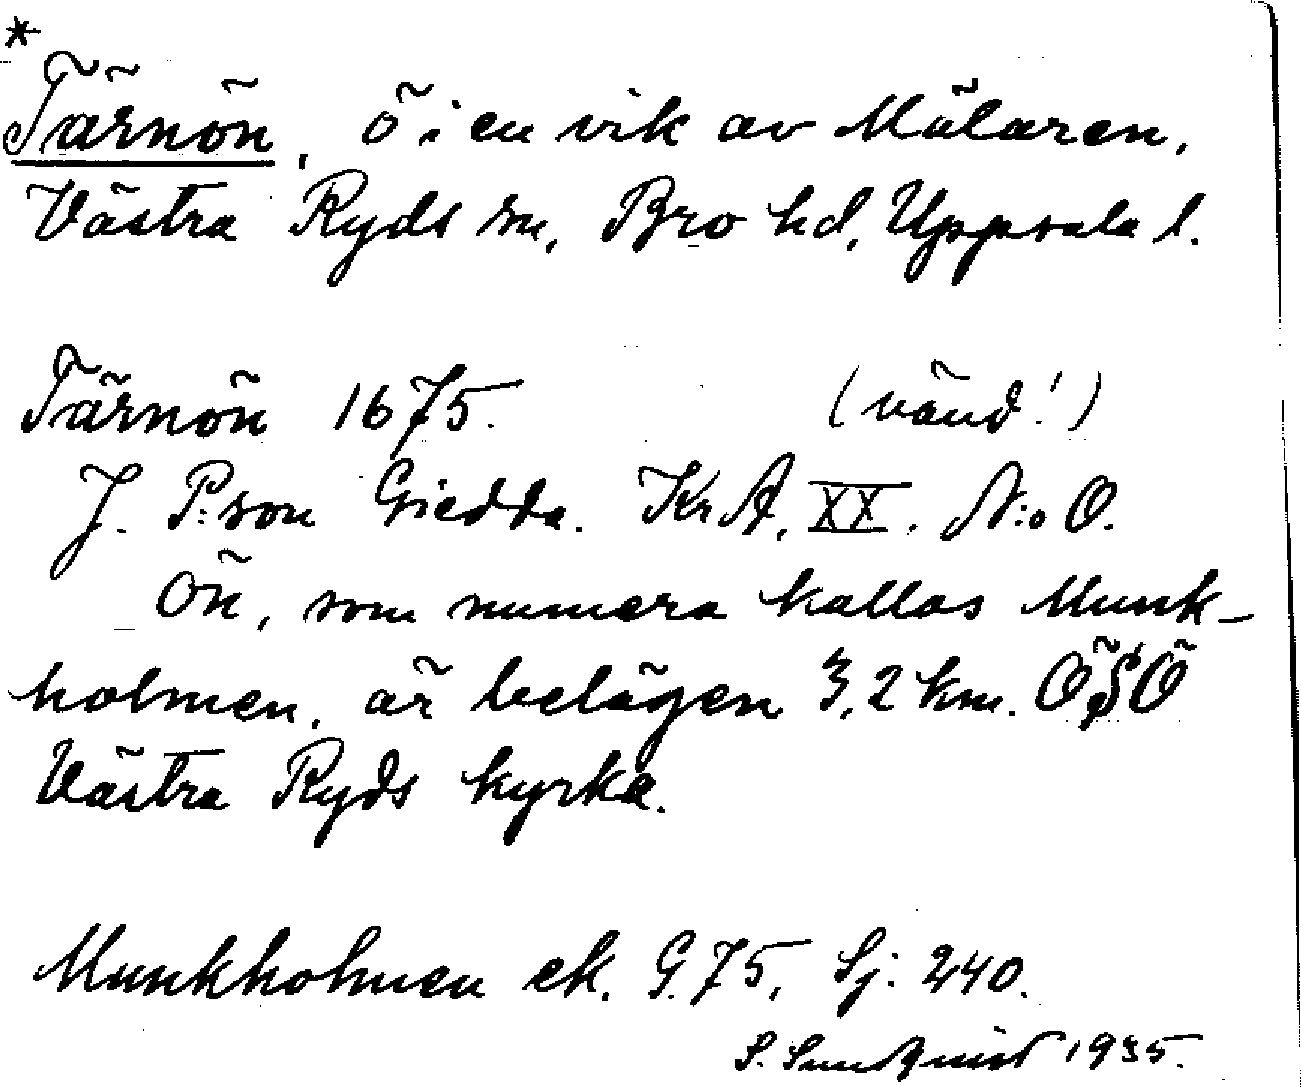 *
Tärnön, ö i en vik av Mälaren,
Västra Ryds sn, Bro hd, Uppsala l.
Tärnön 1675. (vänd!)
J. P:son Giedda. KrA, XX. N:o O.
Ön, som numera kallas Munk-
holmen, är belägen 3,2 km. ÖSÖ
Västra Ryds kyrka.
Munkholmen ek. G. 75, Sj: 240.
S. Sundquist 1935.